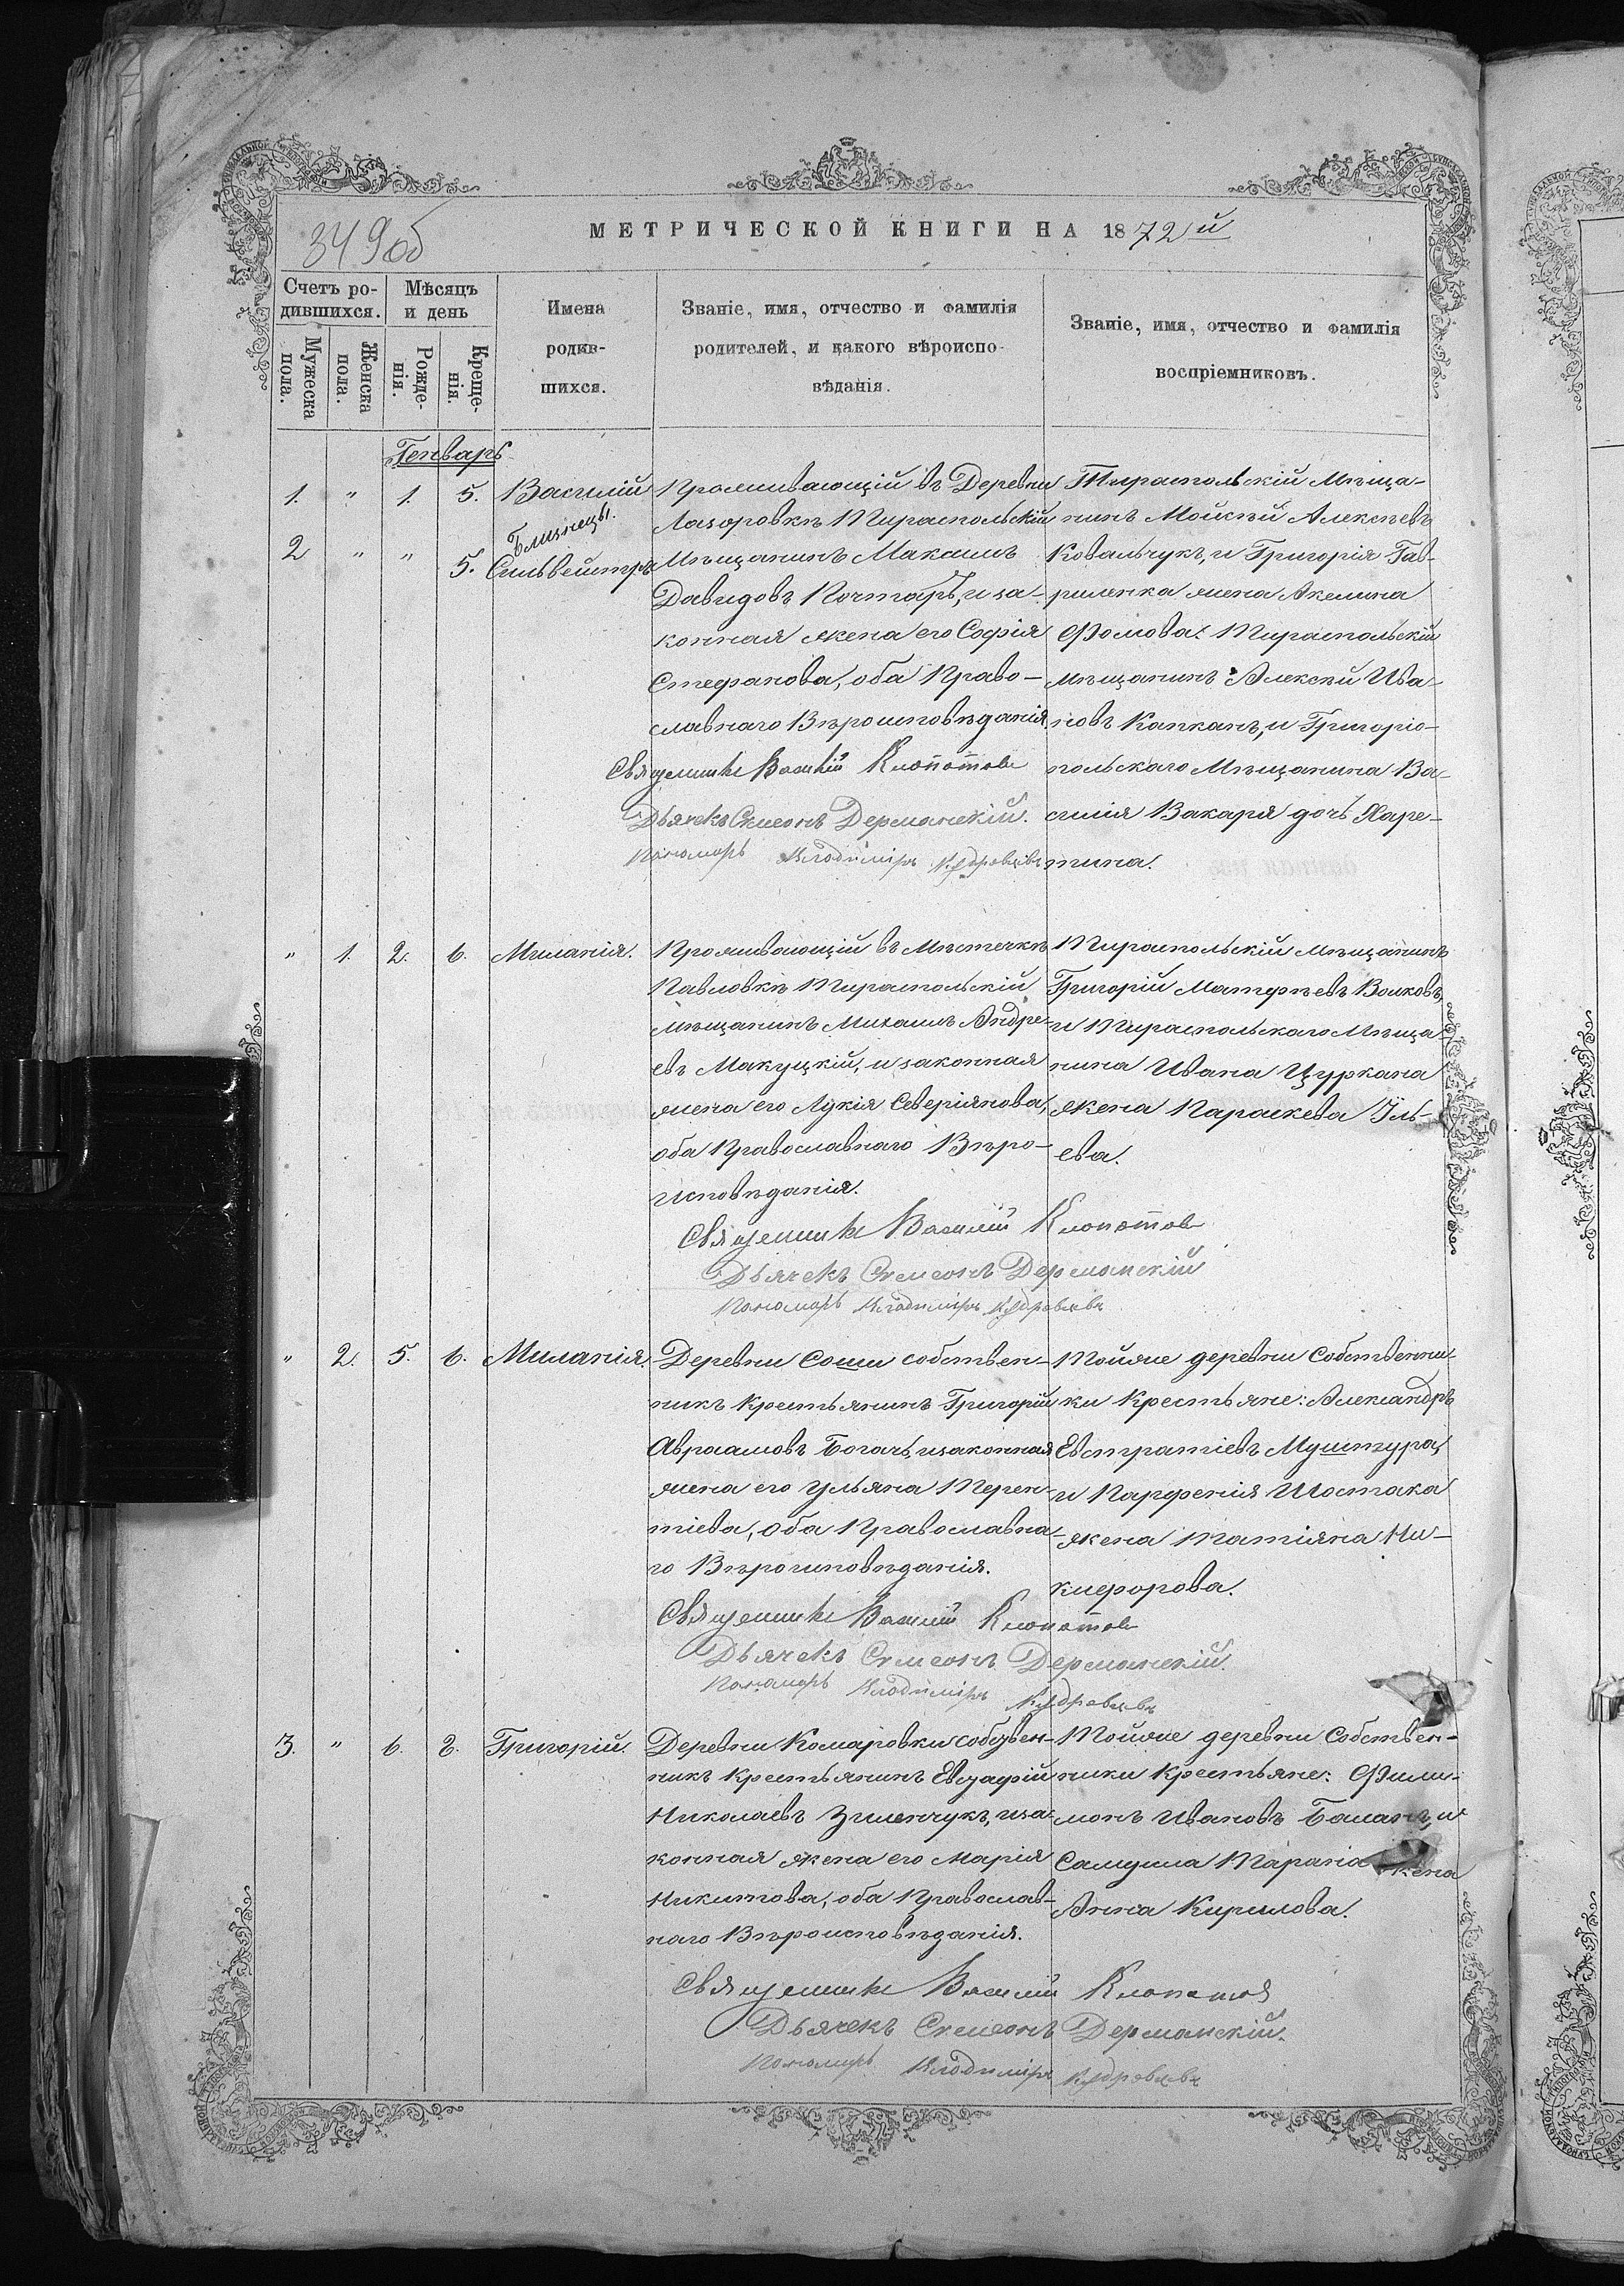 349об
МЕТРИЧЕСКОЙ КНИГИ НА 1872й
Счетъ ро-
дившихся.
Мужеска
пола.
Женска
пола.
Мѣсяцъ
и день
Рожде-
нія.
Креще-
нія.
Имена
родив-
шихся.
Званіе, имя, отчество и фамилія
родителей, и какого вѣроиспо-
вѣданія.
Званіе, имя, отчество и фамилія
воспріемниковъ.
Генварь
1. " 1. 5. Василій
Близнецы.
2 " " 5. Сильвейстръ
Проживающій въ Деревни
Лазоровкѣ Тираспольскій
Мѣщанинъ Макаимъ
Давидовъ Почтарь, и за-
конная жена его Софія
Стефанова, оба Право-
славнаго Вѣроисповѣданія.
Священникъ Василій Клопотовъ
Дьячекъ Симеонъ Дерманскій.
Пономарь Владиміръ
Тираспольскій Мѣща-
нинъ Мойсѣй Алексѣевъ
Ковальчукъ, и Григорія Гав-
риленка жена Акелина
Фомова: Тираспольскій
мѣщанинъ Алексѣй Ива-
новъ Капканъ, и Григоріо-
польскаго Мѣщанина Ва-
силія Вакаря дочь Харе-
тина.
" 1. 2. 6. Миланія.
Проживающій въ Мѣстечкѣ
Павловкѣ Тираспольскій
мѣщанинъ Михаилъ Андре-
евъ Макуцкій, и законная
жена его Лукія Северіянова,
оба Православнаго Вѣро-
исповѣданія.
Священникъ Василій Клопотовъ
Дьячекъ Симеонъ Дерманскій
Пономарь Владиміръ
Тираспольскій мѣщанинъ
Григорій Матѳѣевъ Волковъ,
и Тираспольскаго Мѣща-
нина Ивана Цуркана
жена Параскева Иль-
ева.
" 2. 5. 6. Миланія.
Деревни Соши собствен-
никъ Крестьянинъ Григорій
Авраамовъ Богачъ, и законная
жена его Ульяна Терен-
тіева, оба Православна-
го Вѣроисповѣданія.
Священникъ Василій Клопотовъ
Дьячекъ Симеонъ Дерманскій.
Пономарь Владиміръ
Тойже деревни Собственни-
ки Крестьяне: Александръ
Евстратіевъ Муштура,
и Парфенія Шостака
жена Татіяна Ни-
кифорова.
3. " 6. 8. Григорій.
Деревни Комаровки собствен-
никъ Крестьянинъ Евстафій
Николаевъ Зиленчукъ, и за-
конная жена его Марія
Никитова, оба Православ-
наго Вѣроисповѣданія.
Священникъ Василій Клопотов
Дьячекъ Симеонъ Дерманскій.
Пономарь Владиміръ
Тойже деревни Собствен-
ники Крестьяне: Фили-
монъ Ивановъ Баланъ, и
Самуила жена
Анна Кирилова.